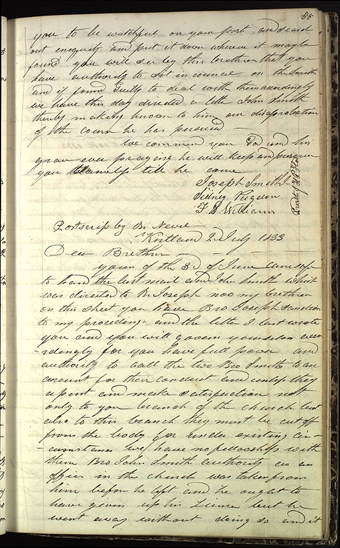 55
you to be watchful on your part and search
out iniquity and put it down wherever it may be
found you will see by this brethren that you
have authority to sit in council on the
and if found guilty to deal with them accordingly
we have this day directed a letter John Smith
thereby making known to him our disapprobation
of the course he has pursued
We commend you God and his
grace ever praying he will keep and preserve
you blameless till he come
Joseph Smith
Sidney Rigdon
F G Williams
Postscript by Br
Kirtland 2 July 1833
Dear Brethren
yours of the 3d of June came safe
to hand the last mail and John Smith which
was directed to Br Joseph now my brethren
on this sheet you have Bro Joseph sanction
to my proceedings and the letter I last wrote
you and you will govern yourselves accor
dingly for you have full power and
authority to call the two Bro Smiths to an
account for their conduct and except they
repent and make satisfaction not
only to your branch of the church but
also to this branch they must be cut off
from the body for under existing cir
cumstances we have no fellowship with
them Bro John Smith authority as an
officer in the church was taken from
him before he left and he ought to
have given up his license but he
went away without doing so and it